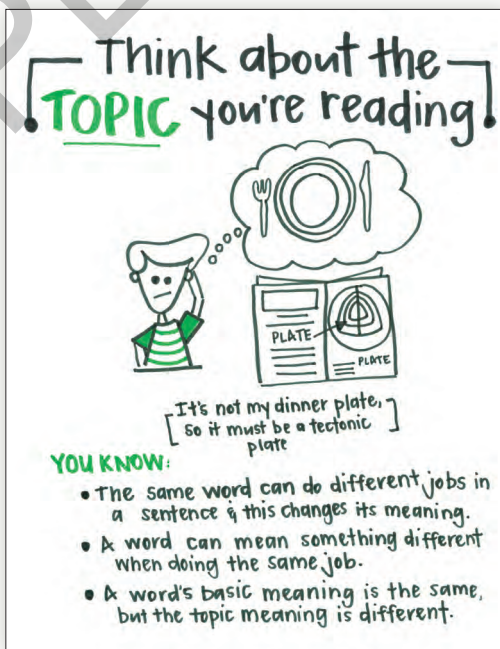 Think about the
TOPIC you're reading!
PLATE
PLATE
It's not my dinner plate,
so it must be a tectonic
plate
YOU KNOW:
• The same word can do different jobs in
a sentence & this changes its meaning.
• A word can mean something different
when doing the same job.
• A word's basic meaning is the same,
but the topic meaning is different.